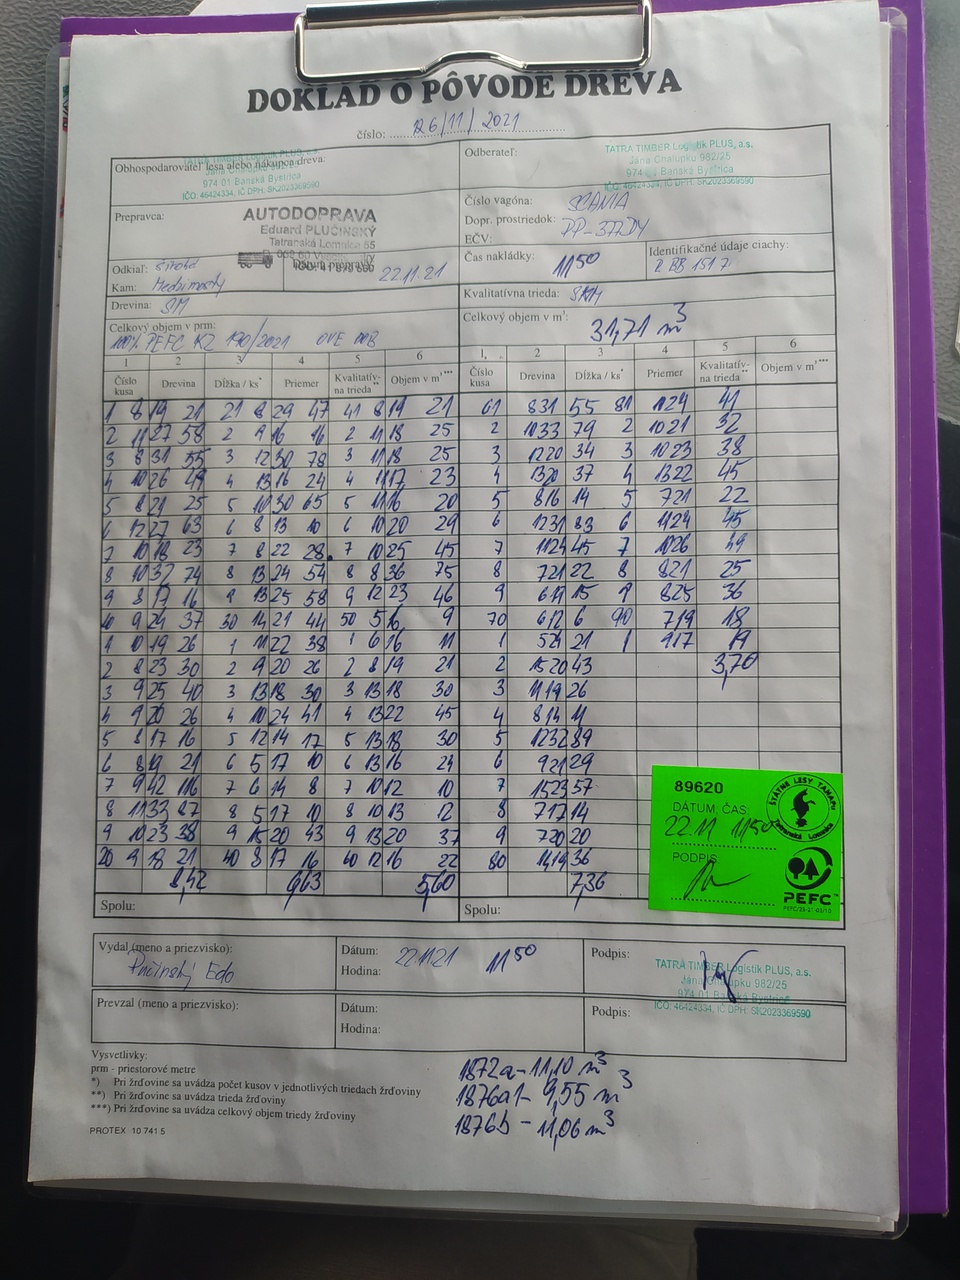 DOKLAD O PÔVODE DREVA
číslo: 126/11/2021
Obhospodarovateľ lesa alebo nákupca dreva:
TATRA TIMBER Logistik PLUS, a.s.
Jána Chalupku 982/25
974 01 Banská Bystrica
IČO: 46424334, IČ DPH: SK2023369590
Odberateľ:
TATRA TIMBER Logistik PLUS, a.s.
Jána Chalupku 982/25
974 01 Banská Bystrica
IČO: 46424334, IČ DPH: SK2023369590
Prepravca:
AUTODOPRAVA
Eduard PLUČINSKÝ
Tatranská Lomnica 55
Číslo vagóna: SCANIA
Dopr. prostriedok: PP-377DY
EČV:
Odkiaľ:
Kam:
Dátum prepravy: 22.11.21
Čas nakládky: 11 50
Identifikačné údaje ciachy:
Z BB 151 7
Drevina: SM
Kvalitatívna trieda:
Celkový objem v prm:
100% PEFC KZ 190/2021
Celkový objem v m³: 31,71 m³
1 2 3 4 5 6 1, 2 3 4 5 6
Číslo kusa Drevina Dĺžka / ks* Priemer Kvalitatívna trieda** Objem v m³***
Číslo kusa Drevina Dĺžka / ks* Priemer Kvalitatívna trieda** Objem v m³***
1 8 19 21 21 8 29 47 41 8 19 21 61 8 31 55 81 11 24 41
2 11 27 58 2 9 16 16 2 11 18 25 2 10 33 79 2 10 21 32
3 8 31 55 3 12 30 78 3 11 18 25 3 12 20 34 3 10 23 38
4 10 26 49 4 13 16 24 4 11 17 23 4 13 20 37 4 13 22 45
5 8 21 25 5 10 30 65 5 11 16 20 5 8 16 14 5 7 21 22
6 12 27 63 6 8 13 10 6 10 20 29 6 12 31 83 6 11 24 45
7 10 18 23 7 8 22 28 7 10 25 45 7 11 24 45 7 10 26 49
8 10 32 74 8 13 24 54 8 8 36 75 8 7 21 22 8 8 21 25
9 8 17 16 9 13 25 58 9 12 23 46 9 6 19 15 9 8 25 36
10 9 24 37 30 14 21 44 50 5 16 9 70 6 12 6 90 7 19 18
1 10 19 26 1 11 22 38 1 6 16 11 1 5 24 21 1 9 17 19
2 8 23 30 2 9 20 26 2 8 19 21 2 15 20 43 3,70
3 9 25 40 3 13 18 30 3 13 18 30 3 11 19 26
4 9 20 26 4 10 24 41 4 13 22 45 4 8 14 11
5 8 17 16 5 12 14 17 5 13 18 30 5 12 32 89
6 8 19 21 6 5 17 10 6 13 16 24 6 9 21 29
7 9 42 116 7 6 14 8 7 10 12 10 7 15 23 57
8 11 33 87 8 5 17 10 8 10 13 12 8 7 17 14
9 10 23 38 9 15 20 43 9 13 20 37 9 7 20 20
20 9 18 21 40 8 17 16 60 12 16 22 80 14 19 36
8,42 6,63 5,60 7,36
Spolu:
Spolu:
89620
DÁTUM, ČAS:
22.11 11 50
PODPIS
ŠTÁTNE LESY TANAPu
Tatranská Lomnica
PEFC
Vydal (meno a priezvisko):
Dátum: 22.11.21
Hodina: 11 50
Podpis:
TATRA TIMBER Logistik PLUS, a.s.
Jána Chalupku 982/25
974 01 Banská Bystrica
IČO: 46424334, IČ DPH: SK2023369590
Prevzal (meno a priezvisko):
Dátum:
Hodina:
Podpis:
Vysvetlivky:
prm - priestorové metre
*) Pri žrďovine sa uvádza počet kusov v jednotlivých triedach žrďoviny
**) Pri žrďovine sa uvádza trieda žrďoviny
***) Pri žrďovine sa uvádza celkový objem triedy žrďoviny
PROTEX 10 741 5
1872a - 11,10 m³
1876a1 - 9,55 m³
1876b - 11,06 m³